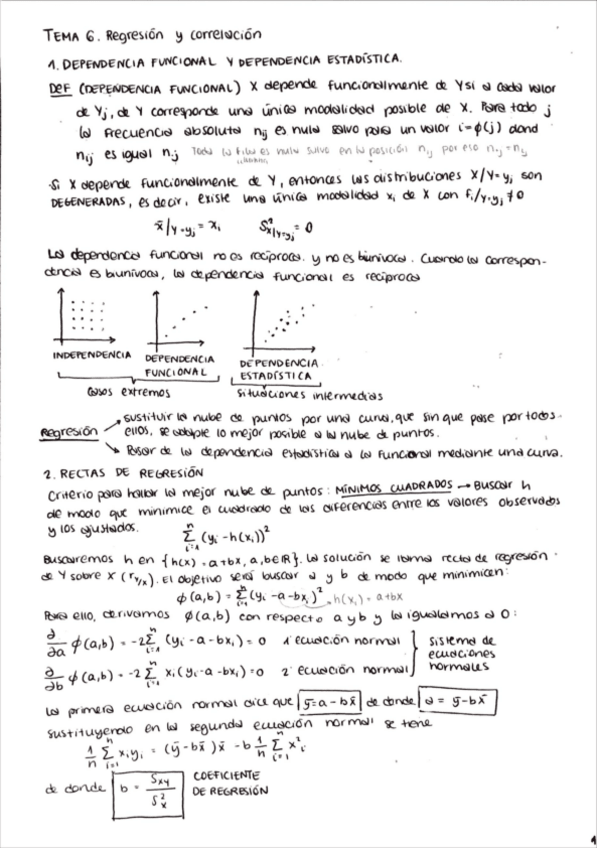 TEMA 6. Regresión y correlación
1. DEPENDENCIA FUNCIONAL Y DEPENDENCIA ESTADÍSTICA.
DEF (DEPENDENCIA FUNCIONAL) X depende funcionalmente de Y si a cada valor
de Yj, de Y corresponde una única modalidad posible de X. Para todo j
la frecuencia absoluta nij es nula salvo para un valor i=φ(j) dond
nij es igual n.j Toda la fila es nula salvo en la posición nij por eso n.j = nij
Si X depende funcionalmente de Y, entonces las distribuciones X/Y=yj son
DEGENERADAS, es decir, existe una única modalidad xi de X con fi/Y=yj ≠ 0
x̄/Y=yj = xi S²x/Y=yj = 0
La dependencia funcional no es recíproca. y no es biunívoca. Cuando la correspon-
dencia es biunívoca, la dependencia funcional es recíproca
INDEPENDENCIA
DEPENDENCIA
FUNCIONAL
DEPENDENCIA
ESTADÍSTICA
Casos extremos
Situaciones intermedias
Regresión
sustituir la nube de puntos por una curva, que sin que pase por todos
ellos, se adapte lo mejor posible a la nube de puntos.
Pasar de la dependencia estadística a la funcional mediante una curva.
2. RECTAS DE REGRESIÓN
Criterio para hallar la mejor nube de puntos: MÍNIMOS CUADRADOS → Buscar h
de modo que minimice el cuadrado de las diferencias entre los valores observados
y los ajustados.
Σⁿᵢ₌₁ (yi - h(xi))²
Buscaremos h en {h(x) = a+bx, a,b∈ℝ}. La solución se llama recta de regresión
de Y sobre X (rY/X). El objetivo será buscar a y b de modo que minimicen:
φ(a,b) = Σⁿᵢ₌₁ (yi - a - bxi)² h(xi) = a+bx
Para ello, derivamos φ(a,b) con respecto a y b y la igualamos a 0:
∂/∂a φ(a,b) = -2 Σⁿᵢ₌₁ (yi - a - bxi) = 0 1ª ecuación normal
∂/∂b φ(a,b) = -2 Σⁿᵢ₌₁ xi(yi - a - bxi) = 0 2ª ecuación normal
sistema de
ecuaciones
normales
La primera ecuación normal dice que ȳ = a - bx̄ de donde a = ȳ - bx̄
sustituyendo en la segunda ecuación normal se tiene
1/n Σⁿᵢ₌₁ xiyi = (ȳ - bx̄)x̄ - b 1/n Σⁿᵢ₌₁ x²i
de donde b = Sxy/S²x
COEFICIENTE
DE REGRESIÓN